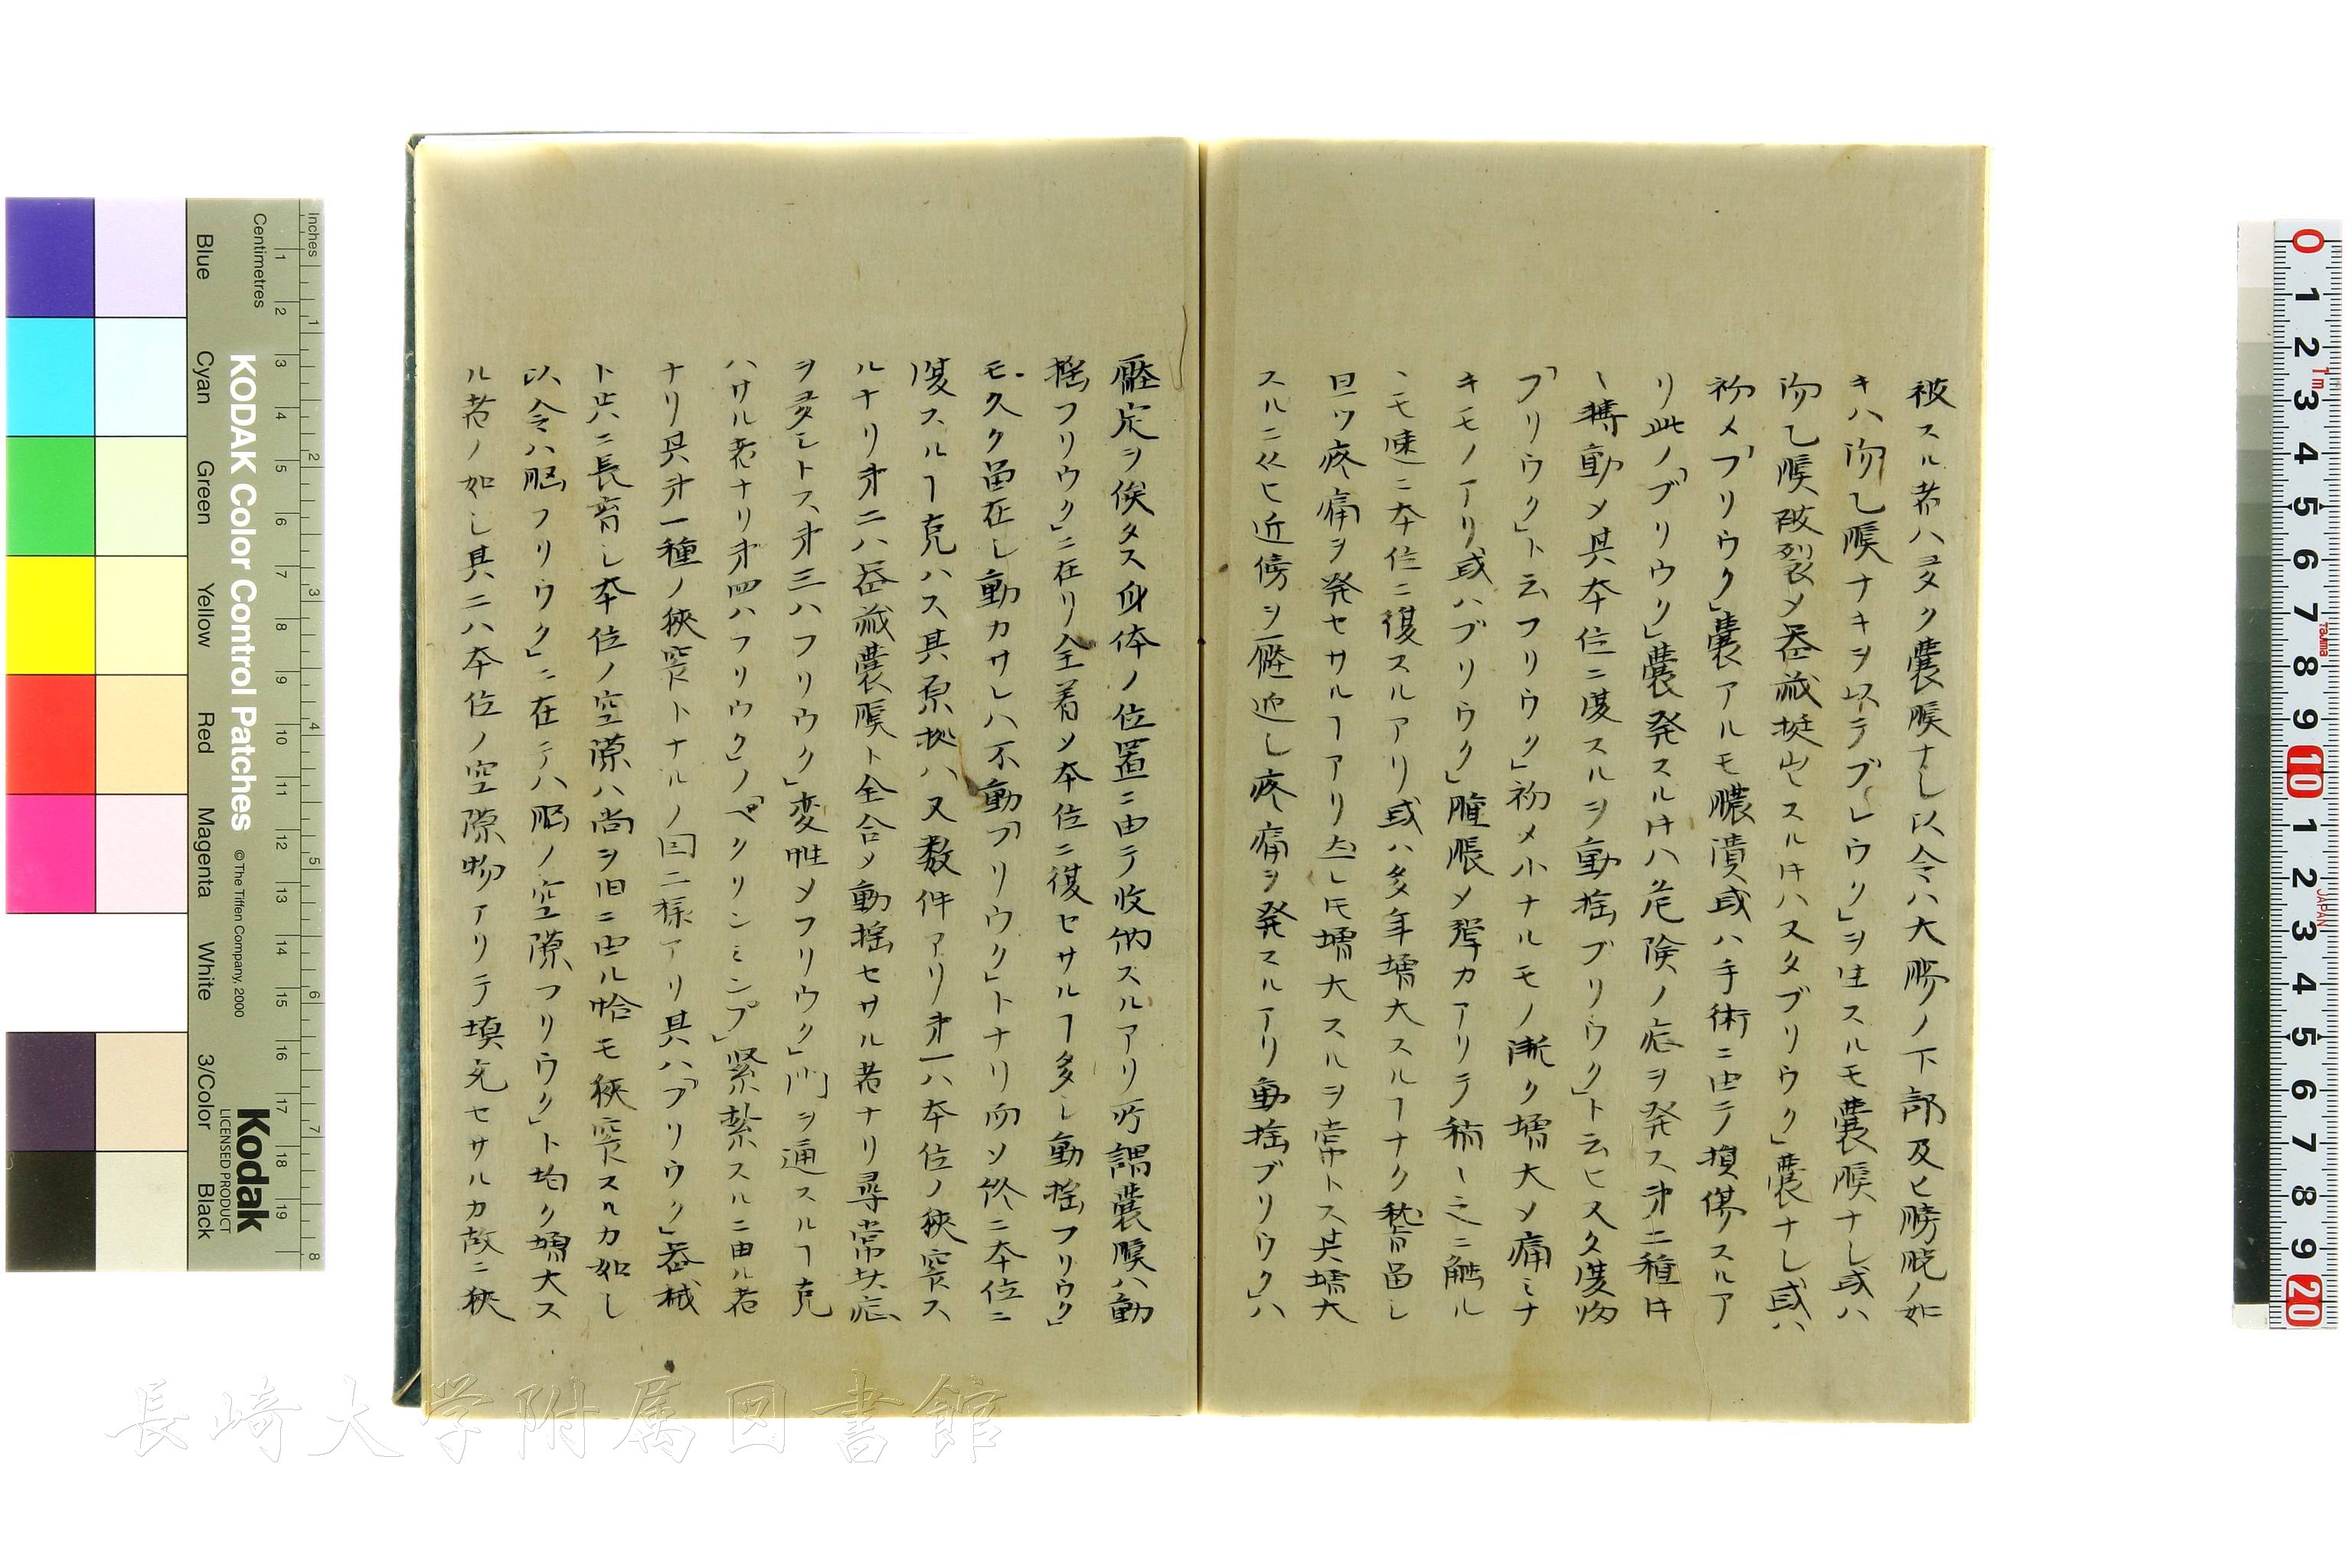 被スル者ハ多ク嚢膜ナし以令ハ大膓ノ下部及ヒ膀胱ノ如
キハ膜ナキヲ以テブレウク」ヲ生スルモ嚢膜ナし或ハ
膜破裂メ器蔵挺出スルハ又タブリウク」嚢ナし或ハ
初メ「ブリウク」嚢アルモ膿潰或ハ手術ニ由テ損傷スルア
リ此ノ「ブリウク」嚢発スルハ危険ノ症ヲ発ス第二種
搏動メ其本位ニ復スルヲ動揺ブリウク」ト云ヒ又タ復
「ブリウク」ト云フリウク」初メ小ナルモノ漸ク増大メ痛ミナ
キモノアリ或ハブリウク」腫脹メ弾力アリテ稍之ニ触ル
モ速ニ本位ニ復スルアリ或ハ多年増大スルナク留し
且ツ疼痛ヲ発セサルアリ然レ増大スルヲ常トス其増大
スルニ従ヒ近傍ヲ壓迫し疼痛ヲ発スルアリ動揺ブリウク」ハ
壓定ヲ俟タス身体ノ位置ニ由テ收納スルアリ所謂嚢膜ハ動
揺フリウク」ニ在リ全着ソ本位ニ復セサル多し動揺フリウク」
モ久ク留在し動カサレハ不動「フリウク」トナリ而ソ終ニ本位ニ
復スル克ハス其原拠ハ又数件アリ第一ハ本位ノ狹窄ス
ルナリ第二ハ器蔵嚢膜ト全合メ動揺セサル者ナリ尋常此症
ヲ多しトス第三ハフリウク」変性メフリウク」門ヲ通スル克
ハサル者ナリ第四ハフリウク」ノ「ペクリンミンプ」緊紮スルニ由ル者
ナリ其第一種ノ狹窄トナルノ因二様アリ其ハ「フリウク」器械
ト共ニ長育し本位ノ空隙ハ尚ヲ旧ニ由ル恰モ狹窄スルカ如し
以令ハ脳フリウク」ニ在テハ脳ノ空隙フリウク」ト均ク増大ス
ル者ノ如し其二ハ本位ノ空隙物アリテ填充セサルカ故ニ狹
Inches
Centimetres
KODAK Color Control Patches
© The Tiffen Company, 2000
Kodak
LICENSED PRODUCT
Blue
Cyan
Green
Yellow
Red
Magenta
White
3/Color
Black
長崎大学附属図書館